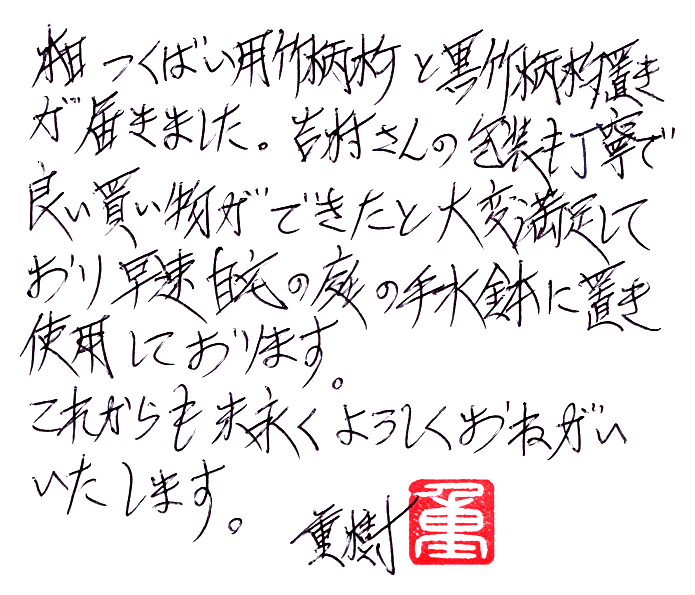 つくばい用竹柄杓と黒竹柄杓置き
が届きました。吉村さんの包装も丁寧で
良い買い物ができたと大変満足して
おり早速自宅の庭の手水鉢に置き
使用しております。
これからも末永くよろしくおねがい
いたします。
重樹
重